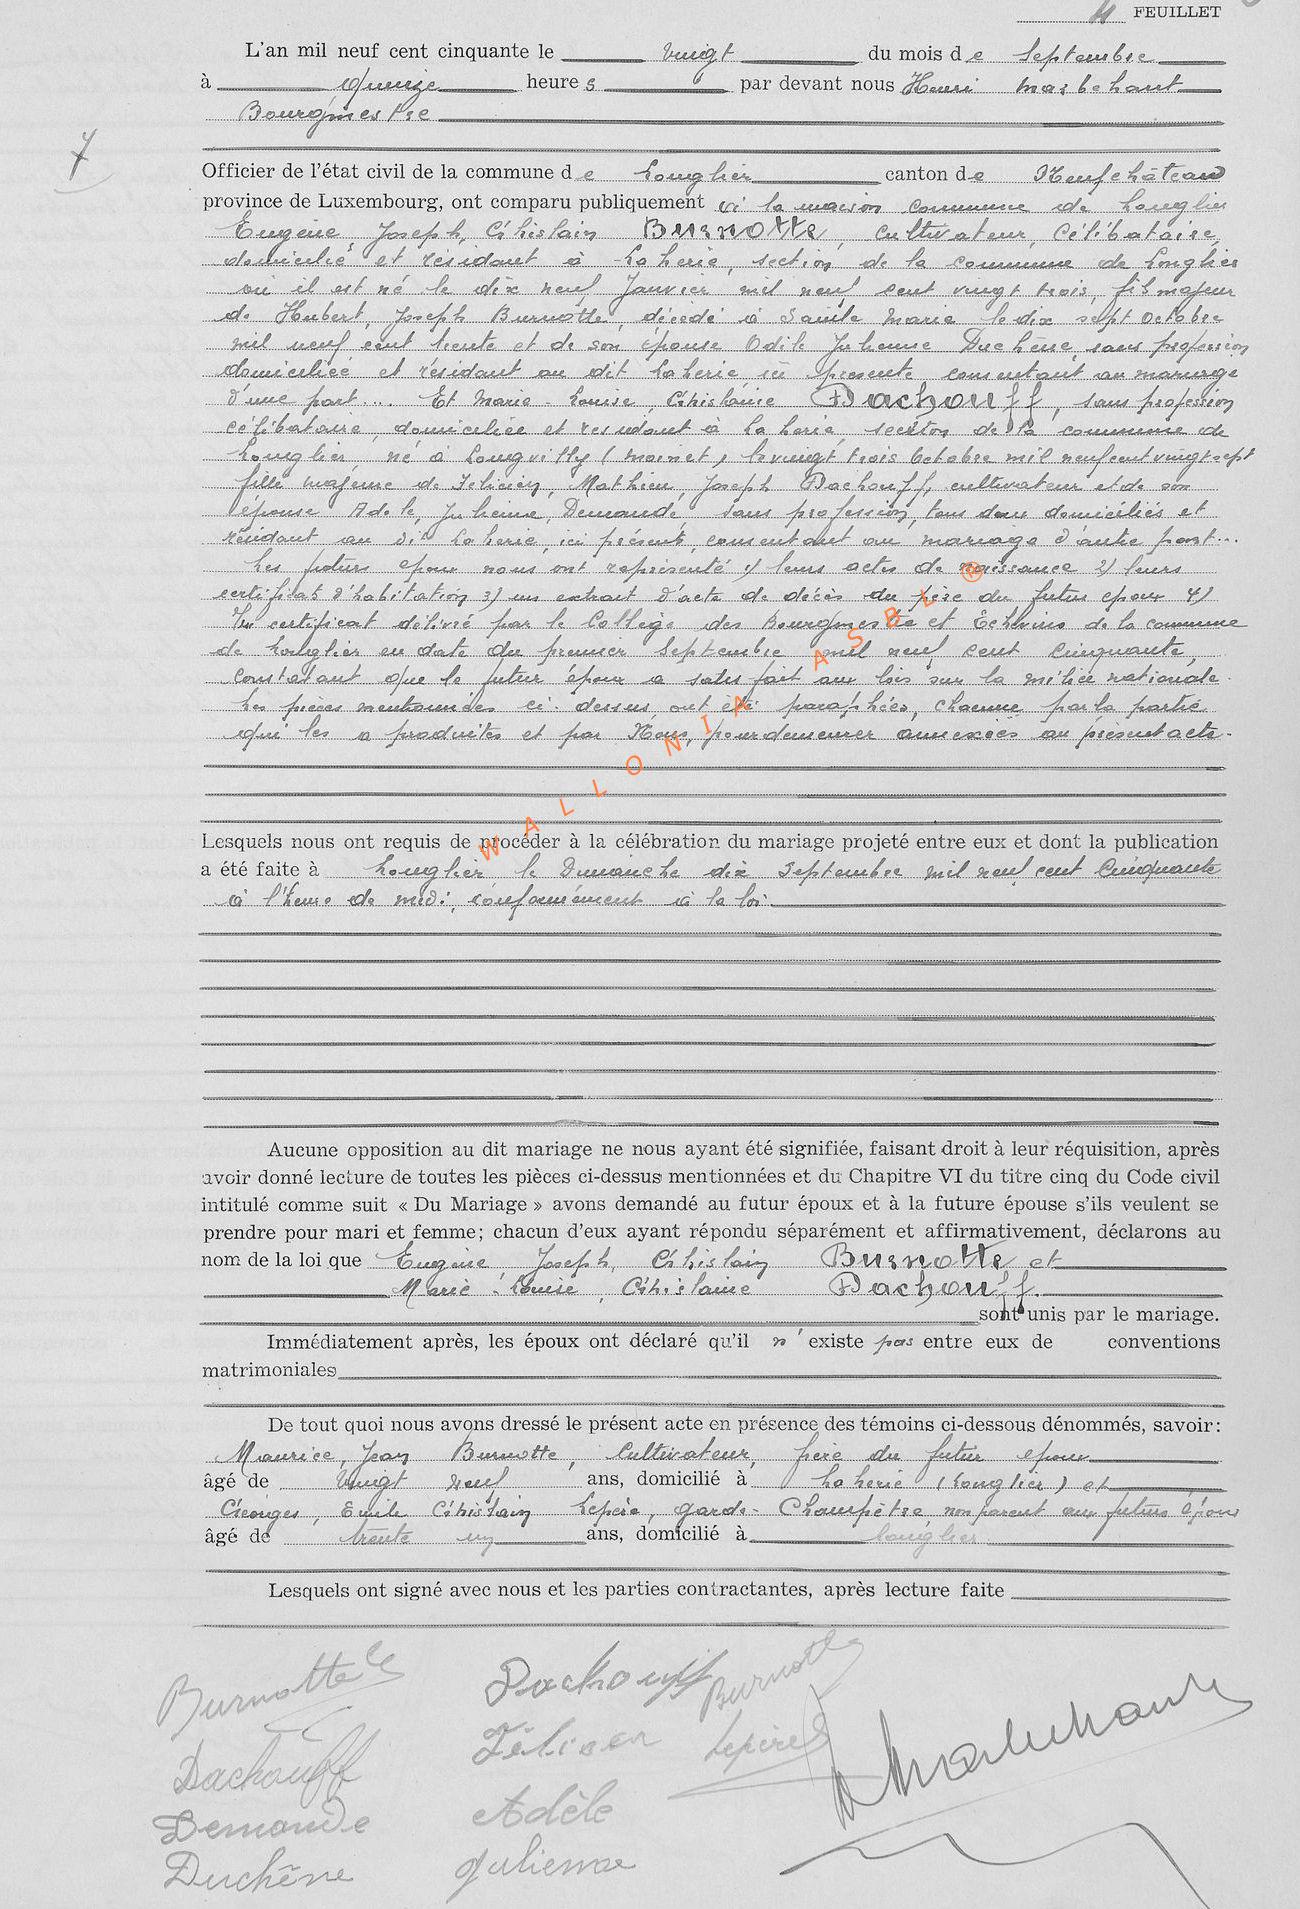 4 FEUILLET
L'an mil neuf cent cinquante le vingt du mois de Septembre
à quinze heures par devant nous Henri Marbehant
Bourgmestre
7
Officier de l'état civil de la commune de Longlier canton de Neufchâteau
province de Luxembourg, ont comparu publiquement à la maison commune de Longlier
Eugène, Joseph, Ghislain Burnotte, cultivateur, célibataire,
domicilié et résidant à Laherie, section de la commune de Longlier
où il est né le dix neuf Janvier mil neuf cent vingt trois, fils majeur
de Hubert, Joseph Burnotte, décédé à Sainte Marie le dix sept Octobre
mil neuf cent trente et de son épouse Odile Julienne Duchêne, sans profession
domiciliée et résidant au dit Laherie, ici présente, consentant au mariage
d'une part... Et Marie-Louise, Ghislaine Dachouff, sans profession
célibataire, domiciliée et résidant à Laherie, section de la commune de
Longlier, né à Longvilly (Moinet) le vingt trois Octobre mil neuf cent vingt sept
fille majeure de Félicien, Mathieu, Joseph Dachouff, cultivateur et de son
épouse Adele, Julienne, Demande, sans profession, tous deux domiciliés et
résidant au dit Laherie, ici présents, consentant au mariage d'autre part...
Les futurs epoux nous ont représenté 1) leurs actes de naissance 2) leurs
certificat d'habitation 3) un extrait d'acte de décès du père du futur epoux 4)
Un certificat délivré par le Collège des Bourgmestre et Echevins de la commune
de Longlier en date du premier Septembre mil neuf cent cinquante,
constatant que le futur époux a satisfait aux lois sur la milice nationale.
Les pièces mentionnées ci-dessus ont été paraphées, chacune par la partie
qui les a produites et par Nous, pour demeurer annexées au présent acte.
WALLONIA ASBL ®
Lesquels nous ont requis de procéder à la célébration du mariage projeté entre eux et dont la publication
a été faite à Longlier le Dimanche dix Septembre mil neuf cent Cinquante
à l'heure de midi, conformément à la loi.
Aucune opposition au dit mariage ne nous ayant été signifiée, faisant droit à leur réquisition, après
avoir donné lecture de toutes les pièces ci-dessus mentionnées et du Chapitre VI du titre cinq du Code civil
intitulé comme suit « Du Mariage » avons demandé au futur époux et à la future épouse s'ils veulent se
prendre pour mari et femme; chacun d'eux ayant répondu séparément et affirmativement, déclarons au
nom de la loi que Eugène Joseph, Ghislain Burnotte et
Marie-Louise, Ghislaine Dachouff.
sont unis par le mariage.
Immédiatement après, les époux ont déclaré qu'il n'existe pas entre eux de conventions
matrimoniales
De tout quoi nous avons dressé le présent acte en présence des témoins ci-dessous dénommés, savoir:
Maurice, Jean Burnotte, Cultivateur, frère du futur epoux
âgé de vingt neuf ans, domicilié à Laherie (Longlier) et
Georges, Emile Ghislain Lepère, garde-Champêtre, non parent aux futurs époux
âgé de trente un ans, domicilié à Longlier
Lesquels ont signé avec nous et les parties contractantes, après lecture faite
Burnotte Dachouff Burnotte
Dachouff Félicien Lepère G Marbehant
Demande Adèle
Duchêne Julienne